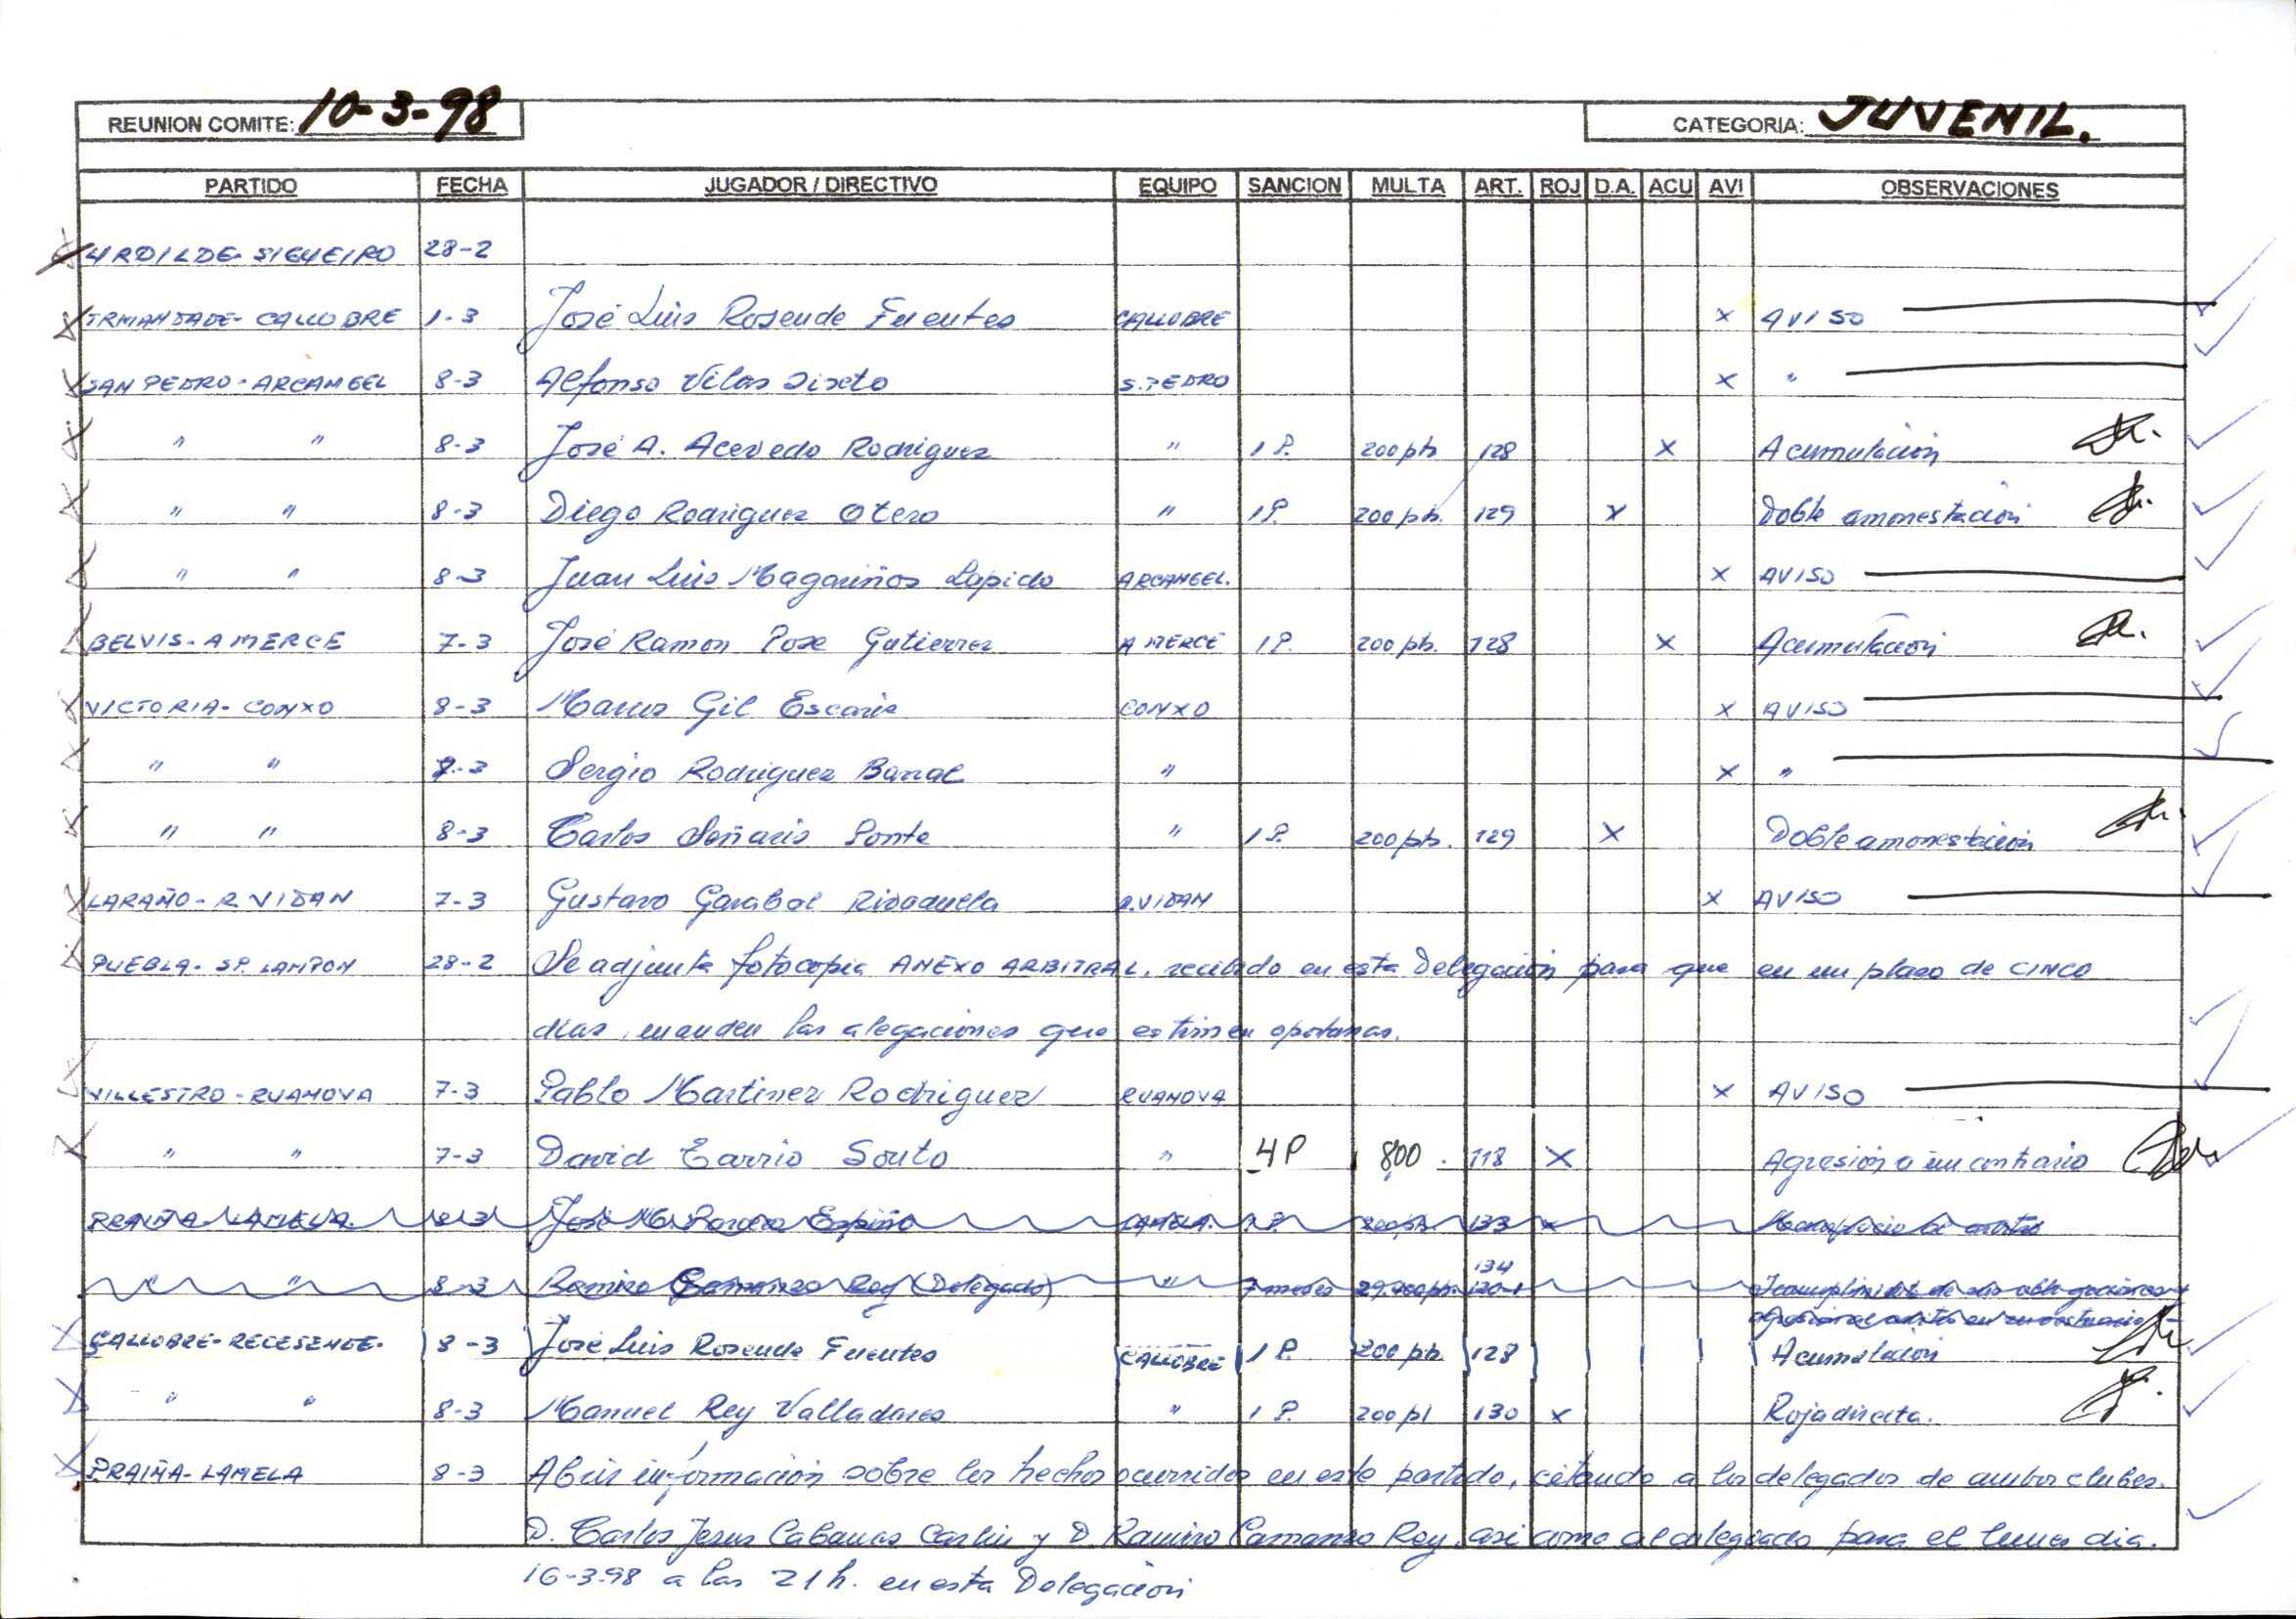 REUNION COMITE: 10-3-98 CATEGORIA: JUVENIL.
PARTIDO FECHA JUGADOR / DIRECTIVO EQUIPO SANCION MULTA ART. ROJ D.A. ACU AVI OBSERVACIONES
URDILDE- SIGUEIRO 28-2
IRMANDADE- CALLOBRE 1-3 José Luis Rosende Fuentes CALLOBRE x AVISO
SAN PEDRO- ARCANGEL 8-3 Alfonso Vilas Sixto S.PEDRO x "
" " 8-3 José A. Acevedo Rodriguez " 1 P. 200 pts 128 x Acumulación
" " 8-3 Diego Rodriguez Otero " 1 P. 200 pts. 129 x Doble amonestación
" " 8-3 Juan Luis Magariños Lapido ARCANGEL. x AVISO
BELVIS- A MERCE 7-3 José Ramon Pose Gutierrez A MERCE 1 P. 200 pts. 128 x Acumulación
VICTORIA- CONXO 8-3 Marcos Gil Escariz CONXO x AVISO
" " 8-3 Sergio Rodriguez Barral " x "
" " 8-3 Carlos Señaris Ponte " 1 P. 200 pts. 129 x Doble amonestación
LARAÑO- R. VIDAN 7-3 Gustavo Garabal R.VIDAN x AVISO
PUEBLA- SP. LAMPON 28-2 Se adjunta fotocopia ANEXO ARBITRAL, recibido en esta Delegación para que en un plazo de CINCO
días, manden las alegaciones que estimen oportunas.
VILLESTRO- RUANOVA 7-3 Pablo Martinez Rodriguez RUANOVA x AVISO
" " 7-3 David Carrio Souto " 4 P 800. 118 x Agresión a un contrario
PRAIÑA LAMELA. 8-3 José Mª Espiño LAMELA. 1 P. 200 pts. 133 x
" 8-3 Ramiro Camanzo Rey (Delegado) " 7 meses 134 Incumplimiento de sus obligaciones y
CALLOBRE- RECESENDE. 8-3 José Luis Rosende Fuentes CALLOBRE 1 P. 200 pts. 128 Acumulación
" " 8-3 Manuel Rey Valladares " 1 P. 200 pt 130 x Roja directa.
PRAIÑA- LAMELA 8-3 Abrir información sobre los hechos ocurridos en este partido, citando a los delegados de ambos clubes.
D. Carlos Jesus Cabanas y D Ramiro Camanzo Rey, asi como al delegado para el lunes dia.
16-3-98 a las 21 h. en esta Delegación